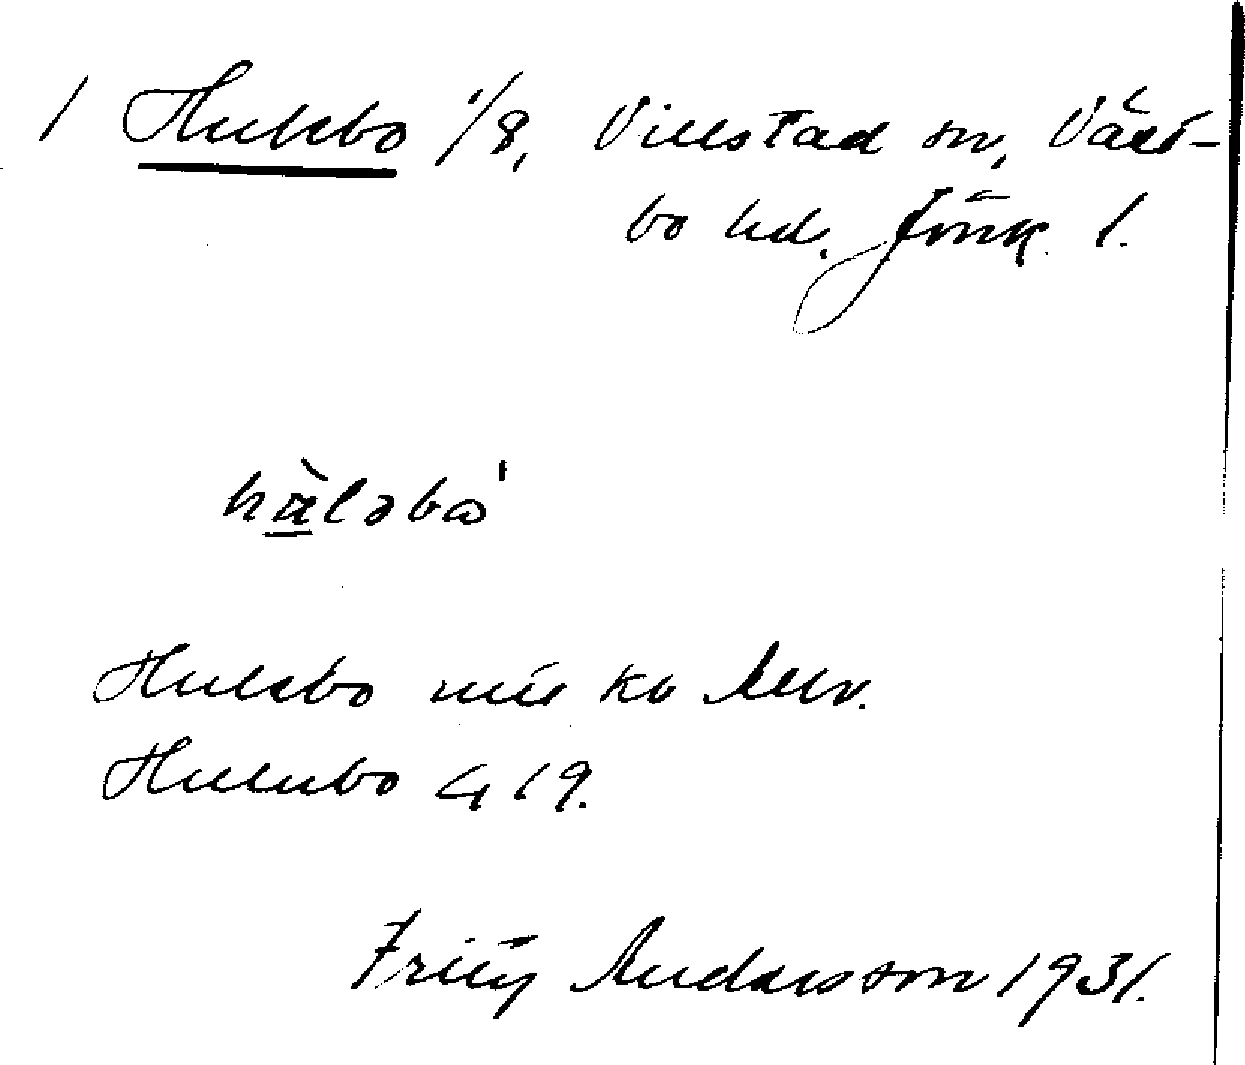 1 Hulebo 1/8, Villstad sn, Väst-
bo hd. Jönk. l.
hàləbo'
Hulebo
Hulubo G 19.
Fritz Andersson 1931.